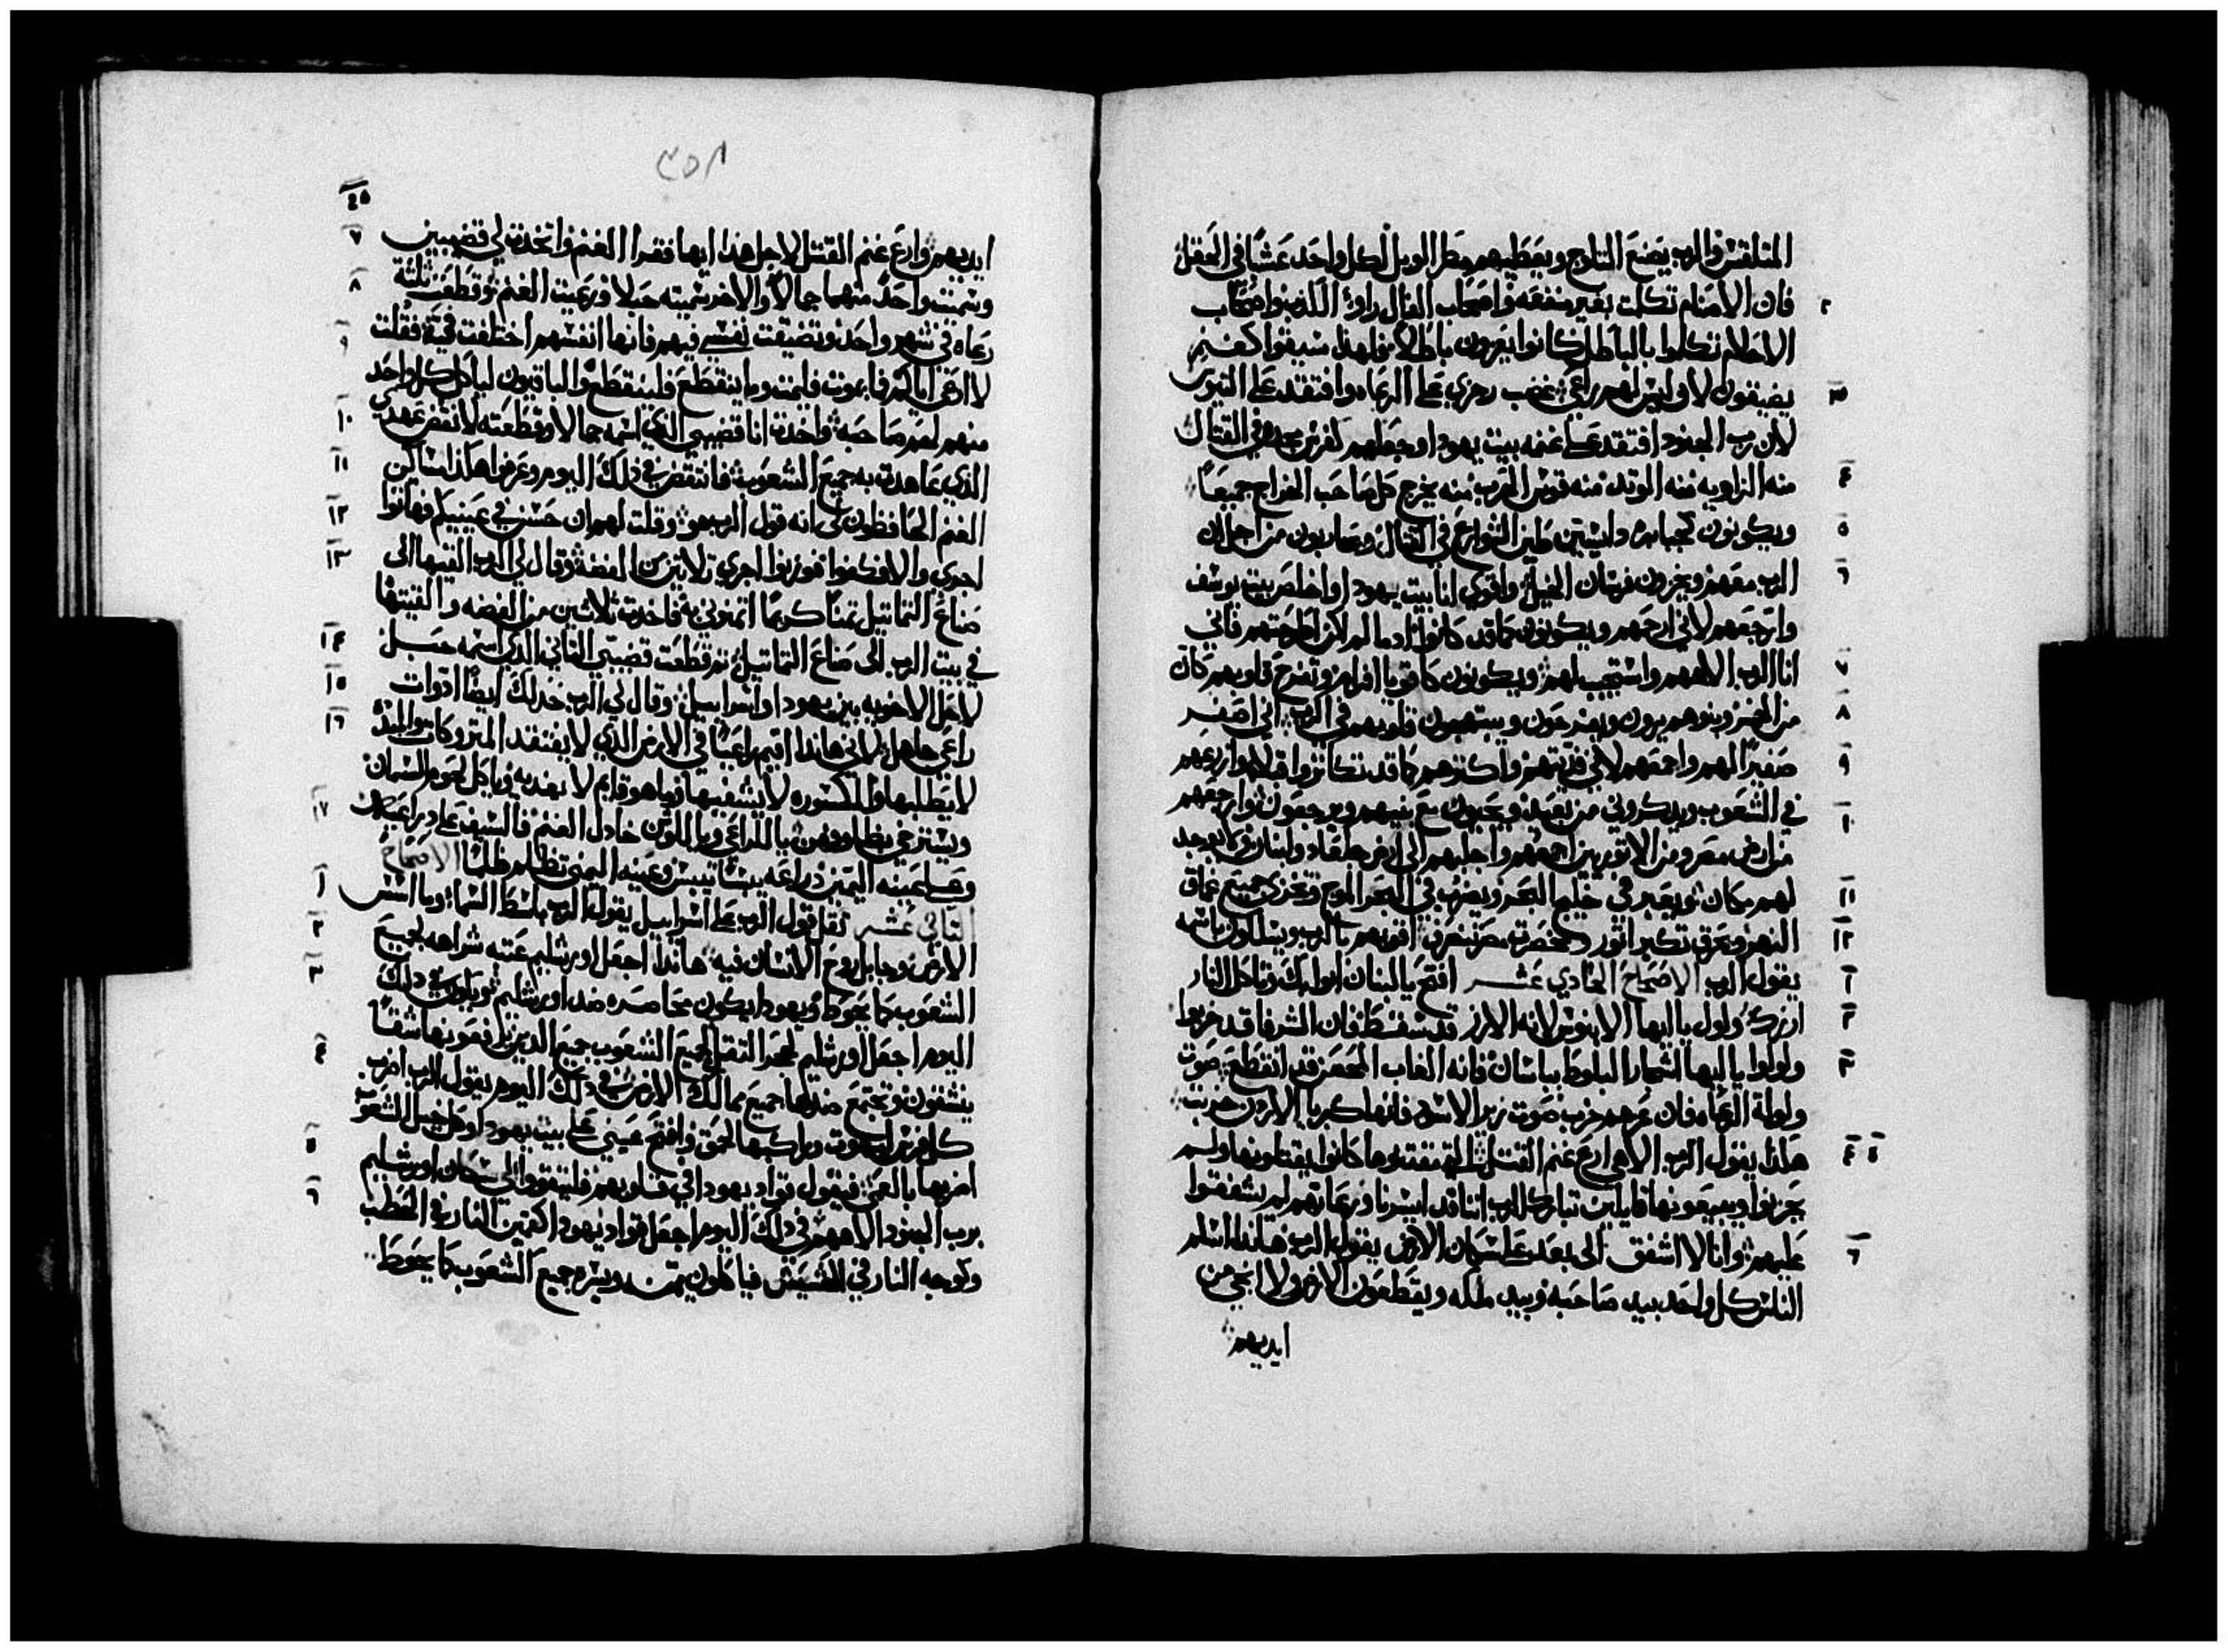 المتلقش فالرب يصنع الثلوج ويعطيهم مطر الوبل لكل واحد عشبًا في الحقل
٢ فان الاصنام تكلمت بغير منفعه واصحاب الفال راوا الكذب واصحاب
الاحلام تكلموا بالباطل كانوا يعزون باطلًا فلهذا سيقوا كغنم
٣ يضيقون لاوليس لهم راعي غضب رجزي على الرعاه وافتقد على التيوس
لان رب الجنود افتقد على غنمه بيت يهودا وجعلهم كفرس مجده في القتال
٤ منه الزاويه منه الوتد منه قوس الحرب منه يخرج كل صاحب الخراج جميعًا
٥ ويكونون كجبابره دايسين طين الشوارع في القتال ويحاربون من اجل ان
٦ الرب معهم ويخزون فرسان الخيل واقوي انا بيت يهودا واخلص بيت يوسف
وارجعهم لاني ارحمهم ويكونون كما قد كانوا ادما لم اكن اطرحتهم فاني
٧ انا الرب الاههم واستجيب لهم ويكونون كاقويا افرام وتفرح قلوبهم كان
٨ من الخمر وبنوهم يرون ويفرحون ويبتهجون قلوبهم في الرب اني اصفر
٩ صفيرًا لهم واجمعهم لاني فديتهم واكثرهم كما قد تكاثروا قبلا وازرعهم
في الشعوب ويذكروني من بعيد ويحيون مع بنيهم ويرجعون وارجعهم
١٠ من ارض مصر ومن الاثوريين اجمعهم واجلبهم الى ارض جلعاد ولبنان ولا يوجد
١١ لهم مكان ويعبر في خليج البحر ويضرب في البحر الموج وتخزى جميع عماق
١٢ النهر ويحرق تكبر اثور وصخصرة مصر تنصرف اقويهم بالرب ويسلكون باسمه
١ يقول الرب الاصحاح الحادي عشر افتح يا لبنان ابوابك وتاكل النار
٢ ارزك ولول يا ايها الابنوس لانه الارز قد سقط فان الشرفا قد خربوا
٣ ولولوا يا ايها اشجار البلوط بباشان فانه الغاب المحصن قد انقطع صوت
ولولة الرعاه فان عزهم خرب صوت زير الاسد فانها كبريا الاردن خربت
٤ ٥ هكذا يقول الرب الاهي ارع غنم القتل التي مقتنوها كانوا يقتلونها ولم
يحزنوا ويبيعونها قايلين تبارك الرب اننا قد ايسرنا ورعاتهم لم يشفقوا
٦ عليهم وانا لا اشفق الى بعد على سكان الارض يقول الرب هاندا اسلم
الناس كل واحد بيد صاحبه وبيد ملكه ويقطعون الارض ولا انجي من
ايديهم
٤٥
٧ ايديهم وارع غنم القتل لاجل هذا ايها فقرا الغنم واتخذت لي قضيبين
٨ وسميت واحدًا منهما جمالًا والاخر سميته حبلا ورعيت الغنم وقطعت ثلثة
٩ رعاه في شهر واحد وتضيقت نفسي فيهم فانها انفسهم اختلفت في فقلت
لا ارعى اياكم فما يموت فليمت وما ينقطع فلينقطع والباقيون لياكل كل واحد
١٠ منهم لحم صاحبه واخذت انا قضيبي الذي اسمه جمالا وقطعته لانقض عهدي
١١ الذي عاهدت به جميع الشعوب فانتقض في ذلك اليوم وعرفوا هكذا مساكين
١٢ الغنم الحافظون لي انه قول الرب هو وقلت لهم ان حسن في عينيكم فهاتوا
١٣ اجرتي والا فكفوا فوزنوا اجرتي ثلاثين من الفضه وقال لي الرب القيها الى
صناع التماثيل ثمنًا كريمًا اثمنوني به فاخذت ثلاثين من الفضه والقيتها
١٤ في بيت الرب الى صناع التماثيل ثم قطعت قضيبي الثاني الذي اسمه حبل
١٥ لاحل الاخويه بين يهودا واسراييل وقال لي الرب خد لك ايضًا ادوات
١٦ راعي جاهل لاني هاندا اقيم راعيًا في الارض الذي لا يفتقد المتروكات والمبدد
لا يطلبها والمكسوره لا يشفيها وما هو قايم لا يغديه وياكل لحوم السمان
١٧ ويسترخي بظلوفهن يا للراعي ويا للوثن خادل الغنم فالسيف على دراعه
وعلى عينه اليمين دراعه يبسًا تيبس وعينه اليمنى تظلم ظلمًا الاصحاح
١ الثاني عشر ثقل قول الرب على اسراييل يقول الرب باسط السماء وماسس
٢ الارض وجابل روح الانسان فيه هاندا اجعل اورشليم عتبه شراهه لجميع
٣ الشعوب كما يحوط ويهودا يكون محاصره ضد اورشليم ويكون في ذلك
اليوم اجعل اورشليم لحجر الثقيل لجميع الشعوب جميع الدين يرفعونها شقًا
٤ ينشقون وتجتمع ضدها جميع ممالك الارض في ذلك اليوم يقول الرب اضرب
كل فرس بالموت وراكبها لحمق وافتح عيني على بيت يهودا وكل خيل الشعوب
٥ اضربها بالعمى فيقول قواد يهودا في قلوبهم فليتقووا لي سكان اورشليم
٦ برب الجنود الاههم في ذلك اليوم اجعل قواد يهودا كمثين النار في الحطب
وكوجه النار في الحشيش فياكلون يمنه ويسره جميع الشعوب كما يحوط